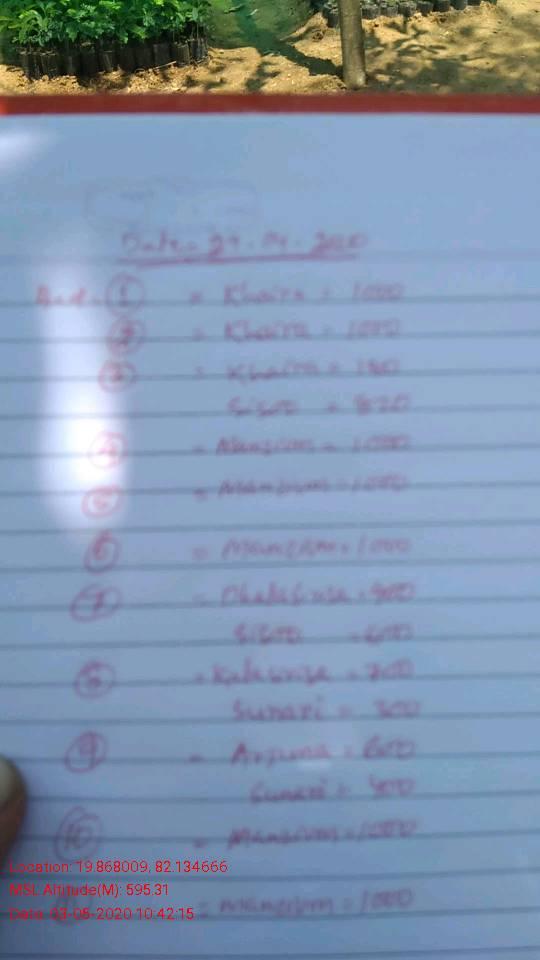 Date - 29-04-2020
Bed - ① = Khaira = 1000
② = Khaira = 1000
③ = Khaira = 180
Sisoo = 820
④ - Manzium = 1000
= Manzium = 1000
= Manzium = 1000
⑦ - = 400
Sisoo = 600
⑧ - = 700
Sunari = 300
⑨ - Arjuna = 600
Sunari = 400
⑩ - Manzium = 1000
= Manzium = 1000
Location: 19.868009, 82.134666
MSL Altitude(M): 595.31
Date: 03-05-2020 10:42:15